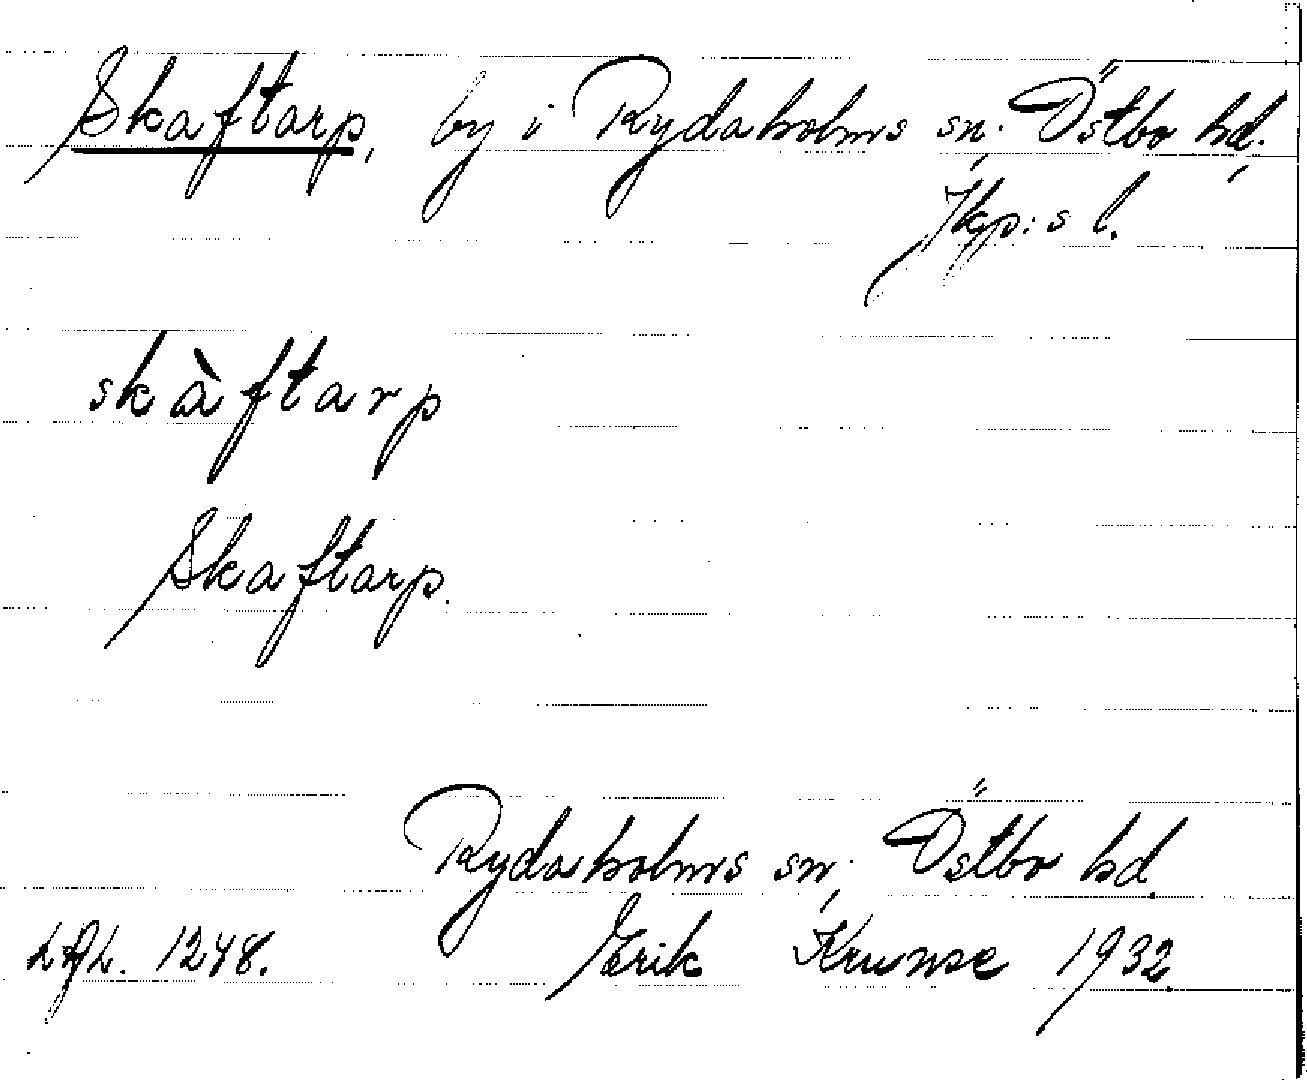 Skaftarp, by i Rydaholms sn, Östbo hd,
Jkp:s l.
skàftarp
Skaftarp.
Rydaholms sn, Östbo hd.
1248. Erik Krunse 1932.